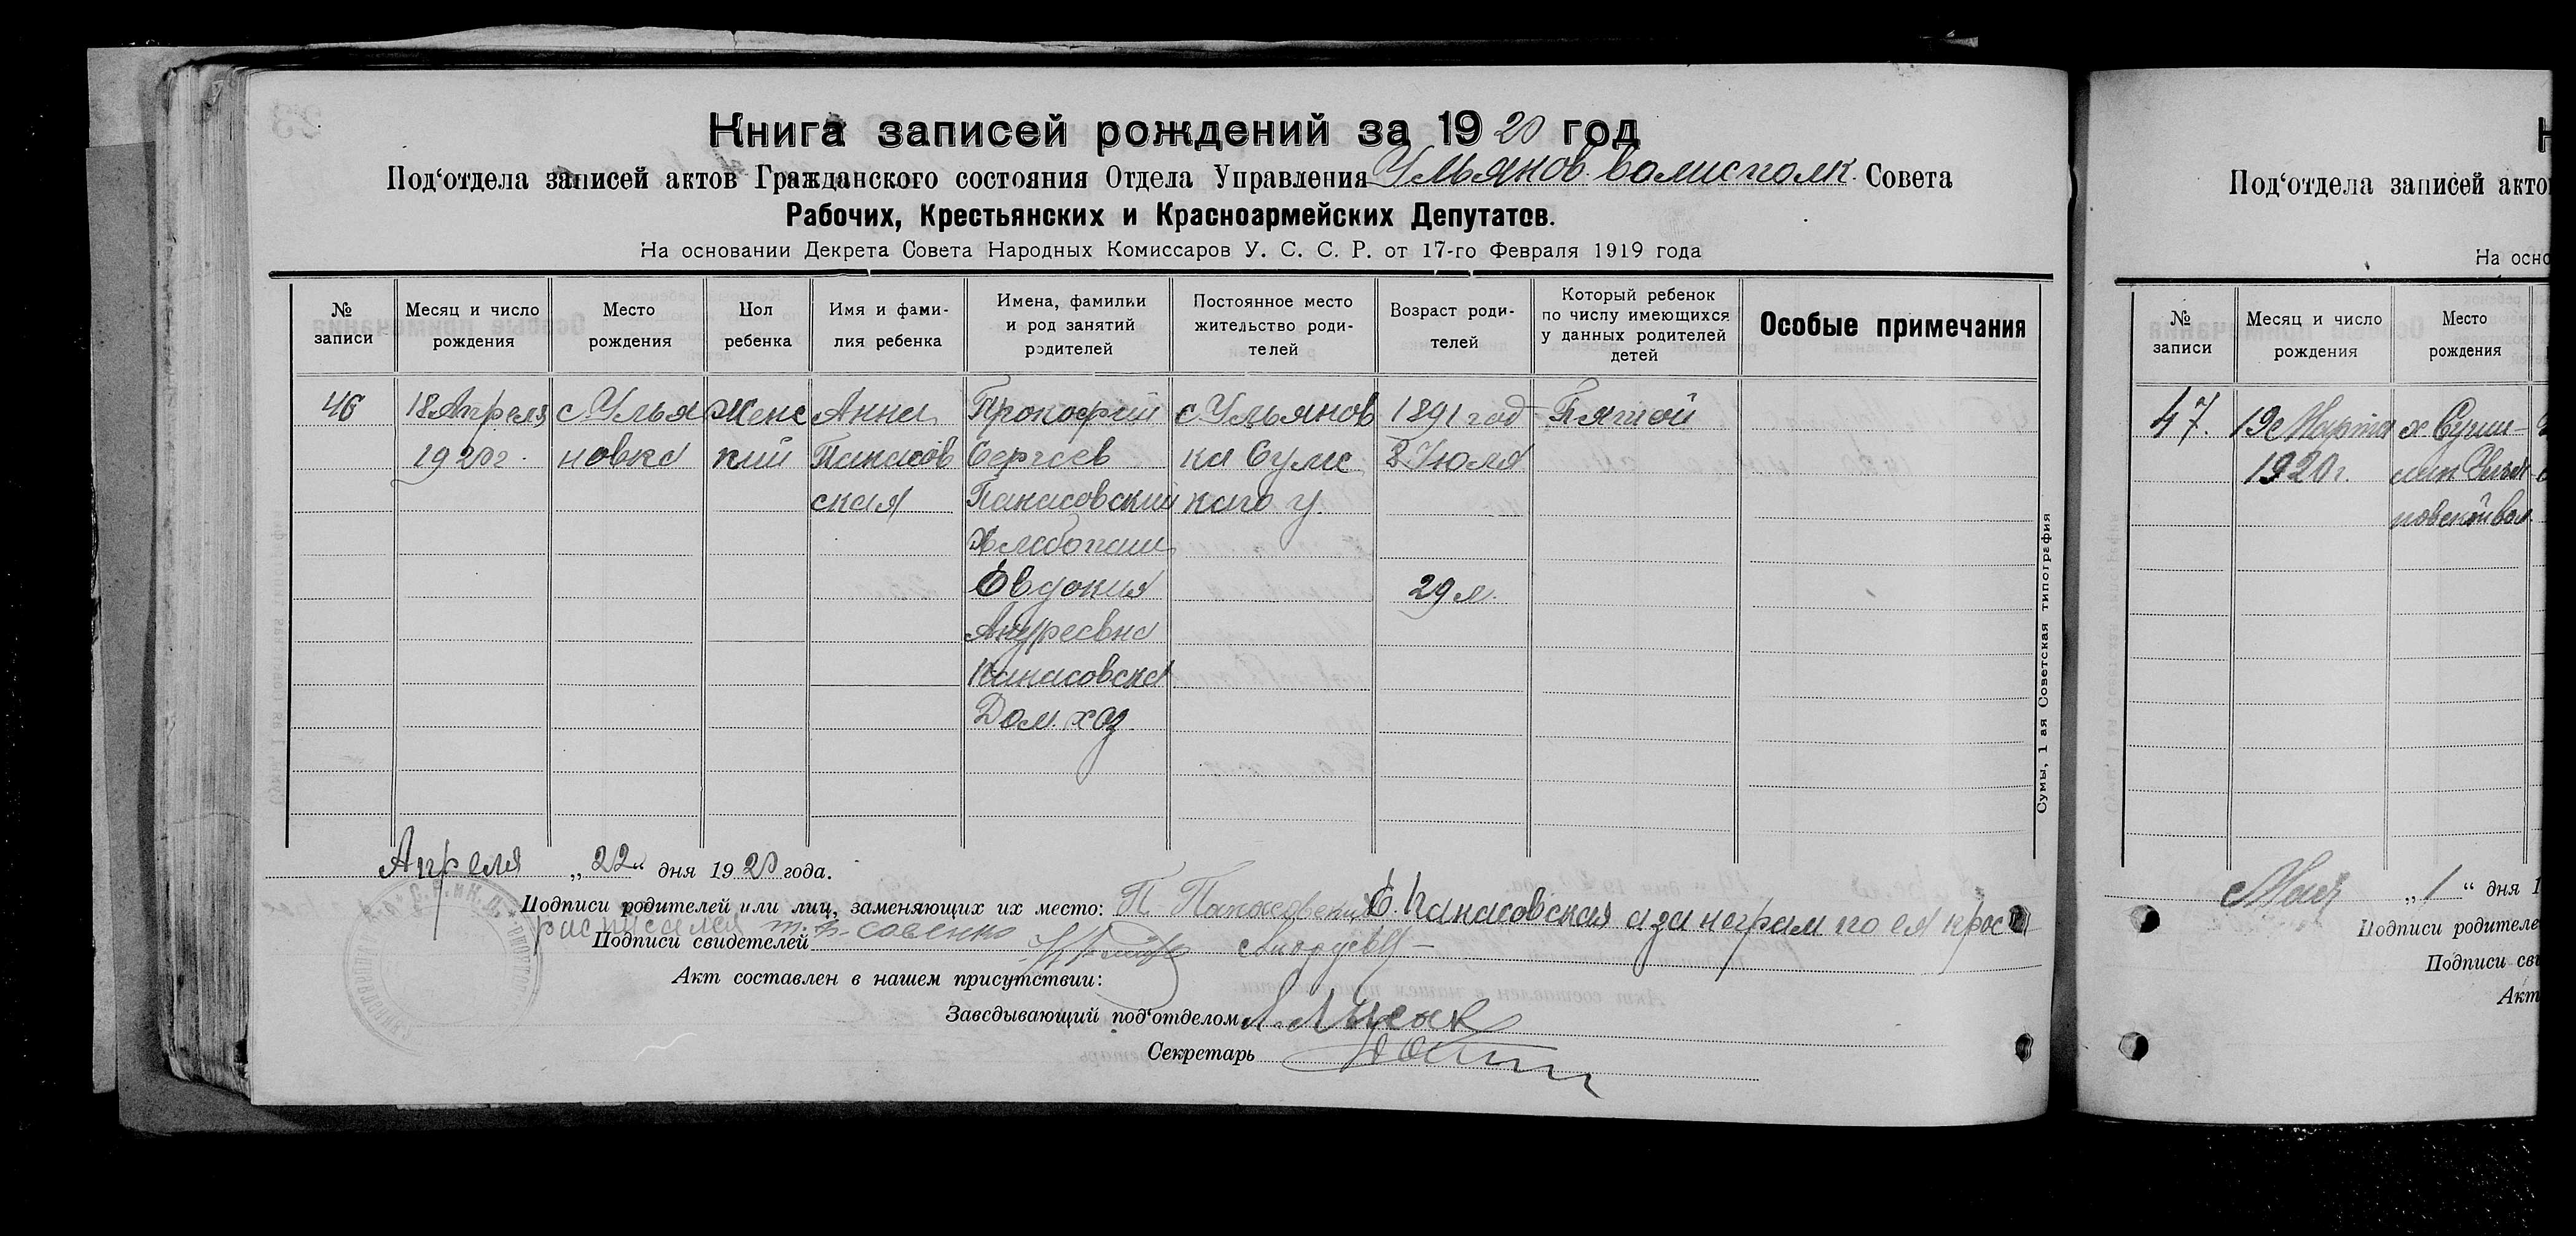 Книга записей рождений за 1920 год
Под‘отдела записей актов Гражданского состояния Отдела Управления Ульянов. волисполк. Совета
Рабочих, Крестьянских и Красноармейских Депутатов.
На основании Декрета Совета Народных Комиссаров У. С. С. Р. от 17-го Февраля 1919 года
№ записи
Месяц и число рождения
Место рождения
Пол ребенка
Имя и фами-
лия ребенка
Имена, фамилии
и род занятий
родителей
Постоянное место
жительство роди-
телей
Возраст роди-
телей
Который ребенок
по числу имеющихся
у данных родителей
детей
Особые примечания
46
18 Апреля
1920 г.
с. Улья
новка
Женс
кий
Анна
Панасов
ская
Прокофий
Сергеев
Панасовский
Хлебопаш
Евдокия
Андреевна
Панасовска
Дом. хоз.
с. Ульянов
ка Сумс
каго у.
1891 год
8 Июля
29 л.
Пятой
Апреля „22“ дня 1920 года.
Подписи родителей или лиц, заменяющих их место: П. Панасовский Е. Панасовская а за неграм по ея прос
росписался Савенко
Подписи свидетелей
Акт составлен в нашем присутствии:
Заведывающий под‘отделом Лысак
Секретарь
Сумы, 1 ая Советская типография
Под‘отдела записей акто
На осно
№ записи
Месяц и число рождения
Место рождения
47.
19 Марта
1920 г.
х
Мая „1“ дня 1
Подписи родителе
Подписи сви
Акт